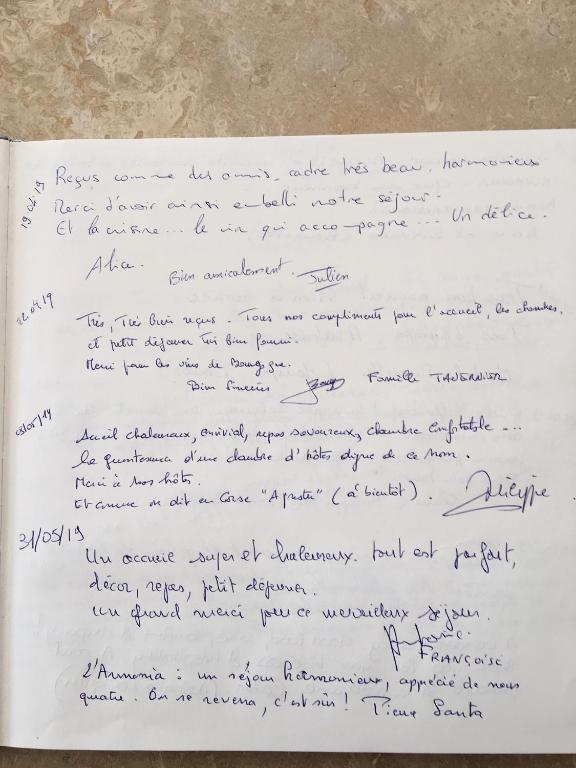 19.04.19
Reçus comme des amis, cadre très beau, harmonieux
Merci d'avoir ainsi embelli notre séjour.
Et la cuisine... le vin qui accompagne... Un délice.
Alice.
Bien amicalement. Julien
22.04.19
Très, Très bien reçus. Tous nos compliments pour l'accueil, les chambres,
et petit déjeuner très bien fourni.
Merci pour les vins de Bourgogne.
Bien Famille TAVERNIER
Accueil chaleureux, convivial, repas savoureux, chambre confortable...
la quintessence d'une chambre d'hôtes digne de ce nom.
Merci à nos hôtes.
Et comme on dit en Corse "A prestu" (à bientôt). Philippe
31/05/19
Un accueil super et chaleureux. tout est parfait,
décor, repas, petit déjeuner.
un grand merci pour ce merveilleux séjour.
FRANÇOISE
L'Armonia : un séjour harmonieux, apprécié de nous
quatre. On se reverra, c'est sûr !